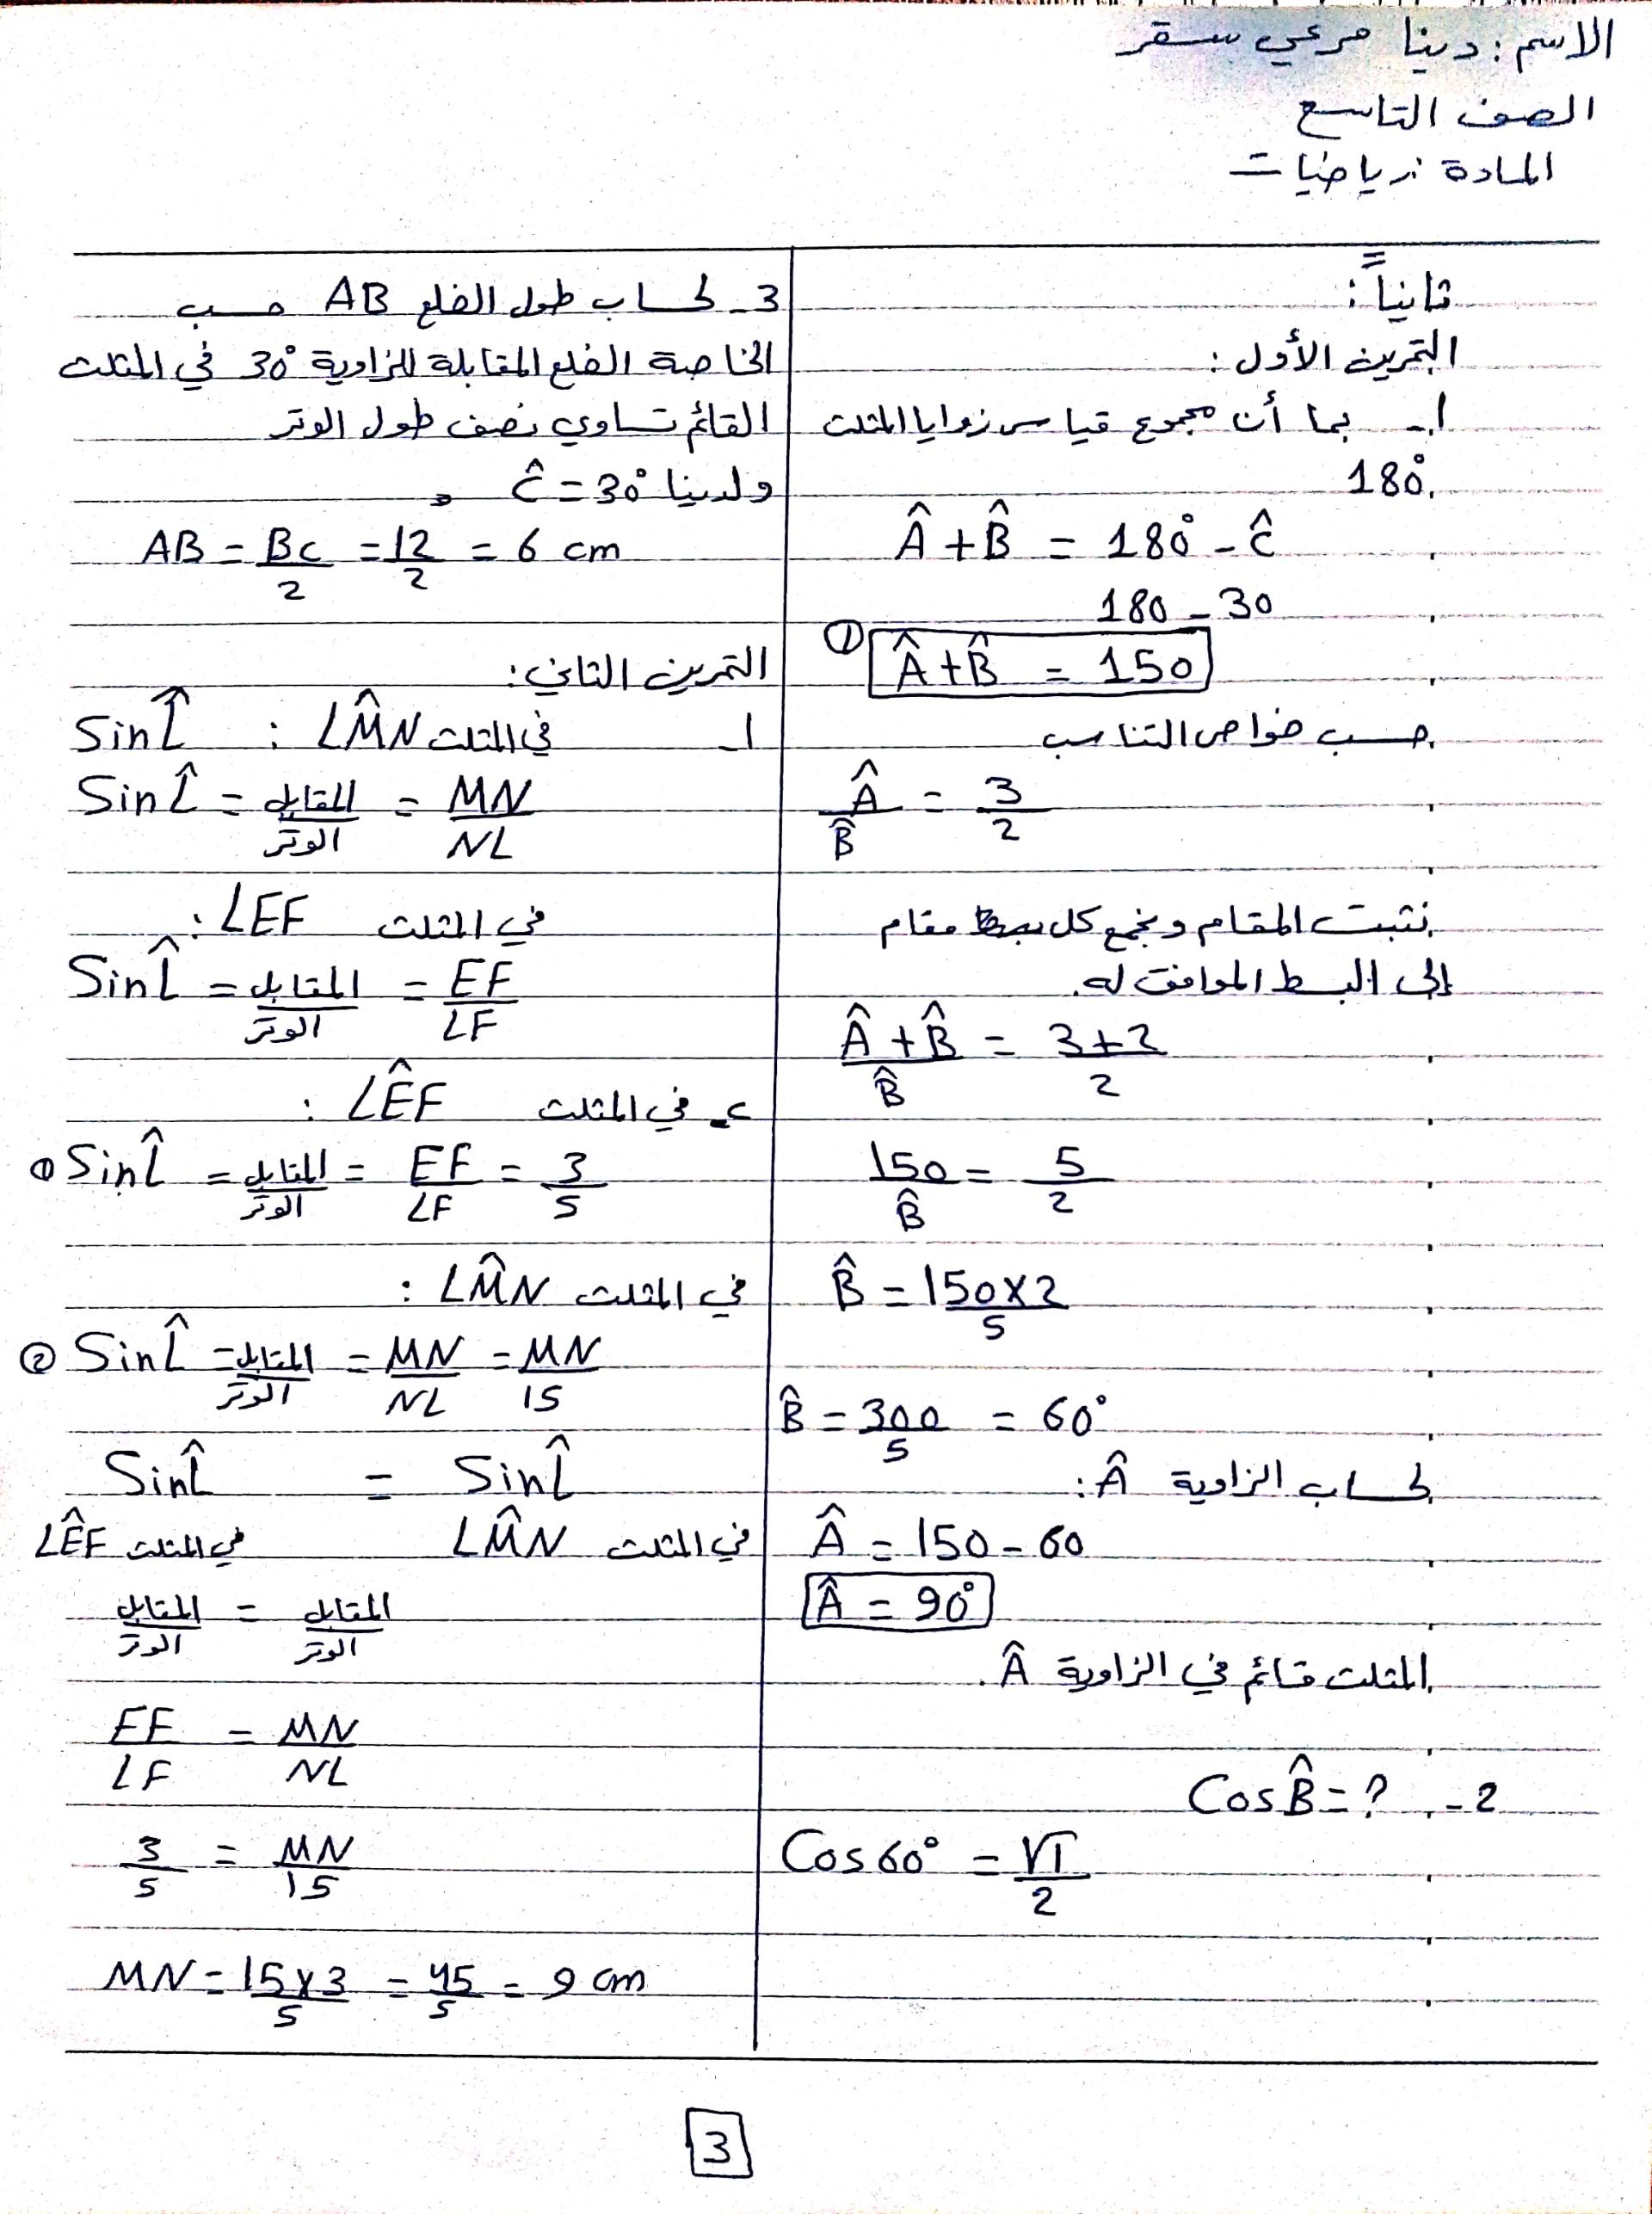 الاسم: دينا مرعي سقر
الصف التاسع
المادة: رياضيات
ثانياً:
التمرين الأول:
1- بما أن مجموع قياس زوايا المثلث
180°
Â + B̂ = 180° - Ĉ
180 - 30
① Â + B̂ = 150
حسب خواص التناسب
Â/B̂ = 3/2
نثبت المقام ونجمع كل مقام
إلى البسط الموافق له.
(Â + B̂)/B̂ = (3+2)/2
150/B̂ = 5/2
B̂ = (150×2)/5
B̂ = 300/5 = 60°
لحساب الزاوية Â:
Â = 150 - 60
Â = 90°
المثلث قائم في الزاوية Â.
2- Cos B̂ = ?
Cos 60° = √1/2
3- لحساب طول الضلع AB حسب
الخاصة الضلع المقابلة للزاوية 30° في المثلث
القائم تساوي نصف طول الوتر
ولدينا Ĉ = 30°
AB = BC/2 = 12/2 = 6 cm
التمرين الثاني:
1- في المثلث LM̂N : Sin L̂
Sin L̂ = المقابل/الوتر = MN/NL
في المثلث LEF:
Sin L̂ = المقابل/الوتر = EF/LF
2- في المثلث LÊF :
① Sin L̂ = المقابل/الوتر = EF/LF = 3/5
في المثلث LM̂N :
② Sin L̂ = المقابل/الوتر = MN/NL = MN/15
Sin L̂ = Sin L̂
في المثلث LÊF في المثلث LM̂N
المقابل/الوتر = المقابل/الوتر
EF/LF = MN/NL
3/5 = MN/15
MN = (15×3)/5 = 45/5 = 9 cm
3